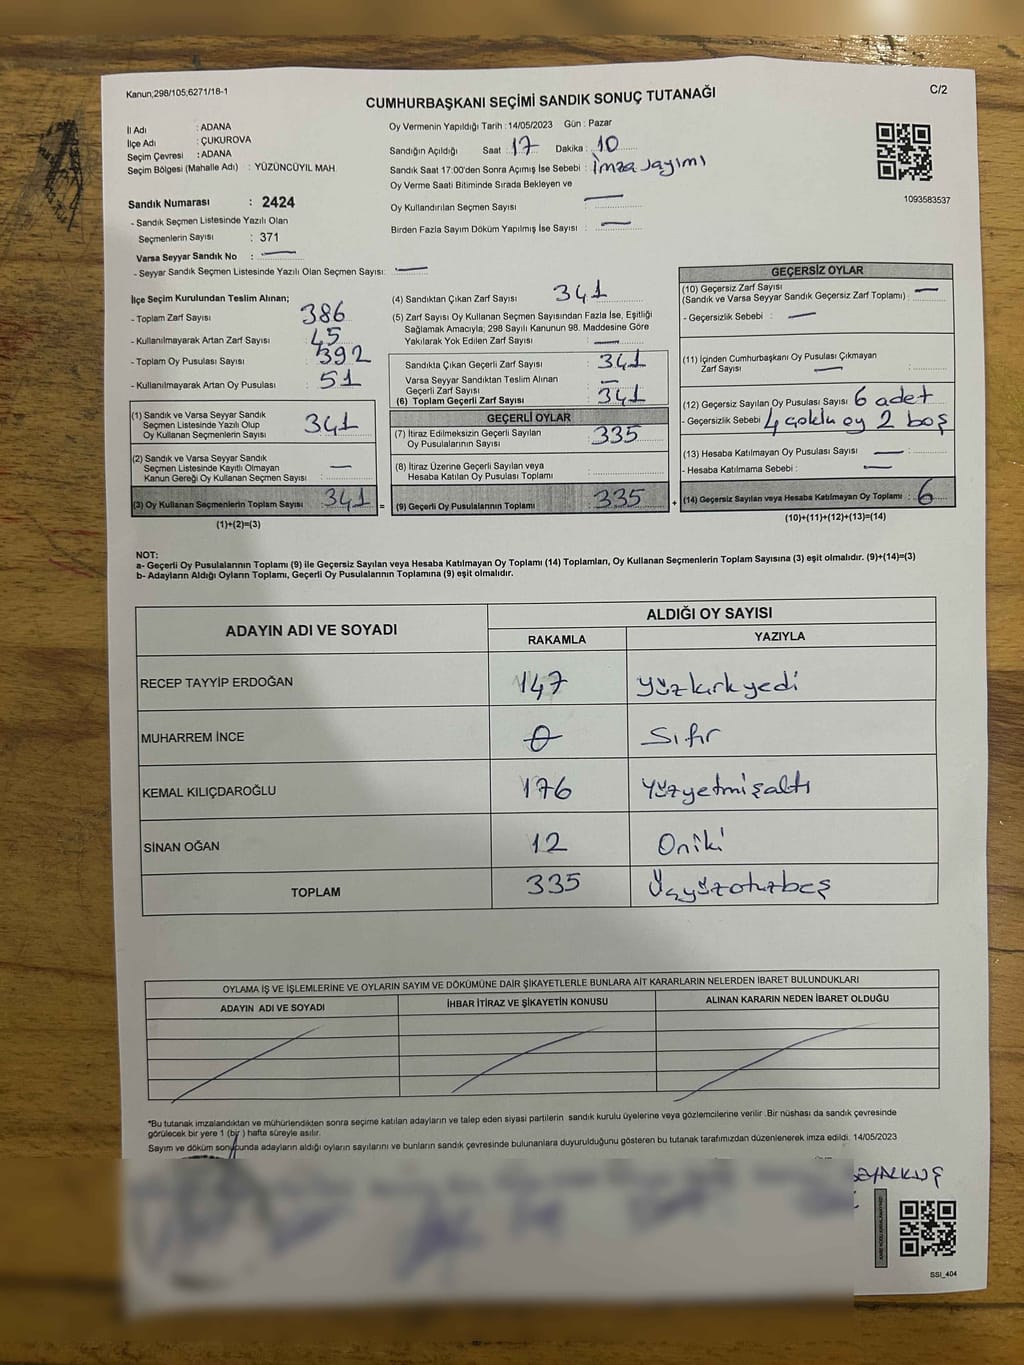 Kanun;298/105;6271/18-1
C/2
CUMHURBAŞKANI SEÇİMİ SANDIK SONUÇ TUTANAĞI
İl Adı : ADANA
İlçe Adı : ÇUKUROVA
Seçim Çevresi : ADANA
Seçim Bölgesi (Mahalle Adı) : YÜZÜNCÜYIL MAH.
Sandık Numarası : 2424
- Sandık Seçmen Listesinde Yazılı Olan
Seçmenlerin Sayısı : 371
Varsa Seyyar Sandık No : —
- Seyyar Sandık Seçmen Listesinde Yazılı Olan Seçmen Sayısı: —
Oy Vermenin Yapıldığı Tarih : 14/05/2023 Gün : Pazar
Sandığın Açıldığı Saat : 17 Dakika : 10
Sandık Saat 17:00'den Sonra Açımış İse Sebebi : İmza sayımı
Oy Verme Saati Bitiminde Sırada Bekleyen ve
Oy Kullandırılan Seçmen Sayısı : —
Birden Fazla Sayım Döküm Yapılmış İse Sayısı : —
1093583537
İlçe Seçim Kurulundan Teslim Alınan;
- Toplam Zarf Sayısı : 386
- Kullanılmayarak Artan Zarf Sayısı : 45
- Toplam Oy Pusulası Sayısı : 392
- Kullanılmayarak Artan Oy Pusulası : 51
(1) Sandık ve Varsa Seyyar Sandık
Seçmen Listesinde Yazılı Olup
Oy Kullanan Seçmenlerin Sayısı : 341
(2) Sandık ve Varsa Seyyar Sandık
Seçmen Listesinde Kayıtlı Olmayan
Kanun Gereği Oy Kullanan Seçmen Sayısı : —
(3) Oy Kullanan Seçmenlerin Toplam Sayısı : 341
(1)+(2)=(3)
=
(4) Sandıktan Çıkan Zarf Sayısı : 341
(5) Zarf Sayısı Oy Kullanan Seçmen Sayısından Fazla İse, Eşitliği
Sağlamak Amacıyla; 298 Sayılı Kanunun 98. Maddesine Göre
Yakılarak Yok Edilen Zarf Sayısı : —
Sandıkta Çıkan Geçerli Zarf Sayısı : 341
Varsa Seyyar Sandıktan Teslim Alınan
Geçerli Zarf Sayısı : —
(6) Toplam Geçerli Zarf Sayısı : 341
GEÇERLİ OYLAR
(7) İtiraz Edilmeksizin Geçerli Sayılan
Oy Pusulalarının Sayısı : 335
(8) İtiraz Üzerine Geçerli Sayılan veya
Hesaba Katılan Oy Pusulası Toplamı :
(9) Geçerli Oy Pusulalarının Toplamı : 335
+
GEÇERSİZ OYLAR
(10) Geçersiz Zarf Sayısı
(Sandık ve Varsa Seyyar Sandık Geçersiz Zarf Toplamı) : —
- Geçersizlik Sebebi : —
(11) İçinden Cumhurbaşkanı Oy Pusulası Çıkmayan
Zarf Sayısı : —
(12) Geçersiz Sayılan Oy Pusulası Sayısı : 6 adet
- Geçersizlik Sebebi : 4 çoklu oy 2 boş
(13) Hesaba Katılmayan Oy Pusulası Sayısı : —
- Hesaba Katılmama Sebebi : —
(14) Geçersiz Sayılan veya Hesaba Katılmayan Oy Toplamı : 6
(10)+(11)+(12)+(13)=(14)
NOT:
a- Geçerli Oy Pusulalarının Toplamı (9) ile Geçersiz Sayılan veya Hesaba Katılmayan Oy Toplamı (14) Toplamları, Oy Kullanan Seçmenlerin Toplam Sayısına (3) eşit olmalıdır. (9)+(14)=(3)
b- Adayların Aldığı Oyların Toplamı, Geçerli Oy Pusulalarının Toplamına (9) eşit olmalıdır.
ADAYIN ADI VE SOYADI
ALDIĞI OY SAYISI
RAKAMLA YAZIYLA
RECEP TAYYİP ERDOĞAN 147 Yüzkırkyedi
MUHARREM İNCE 0 Sıfır
KEMAL KILIÇDAROĞLU 176 Yüzyetmişaltı
SİNAN OĞAN 12 Oniki
TOPLAM 335 Üçyüzotuzbeş
OYLAMA İŞ VE İŞLEMLERİNE VE OYLARIN SAYIM VE DÖKÜMÜNE DAİR ŞİKAYETLERLE BUNLARA AİT KARARLARIN NELERDEN İBARET BULUNDUKLARI
ADAYIN ADI VE SOYADI İHBAR İTİRAZ VE ŞİKAYETİN KONUSU ALINAN KARARIN NEDEN İBARET OLDUĞU
*Bu tutanak imzalandıktan ve mühürlendikten sonra seçime katılan adayların ve talep eden siyasi partilerin sandık kurulu üyelerine veya gözlemcilerine verilir .Bir nüshası da sandık çevresinde
görülecek bir yere 1 (bir ) hafta süreyle asılır.
Sayım ve döküm sonucunda adayların aldığı oyların sayılarını ve bunların sandık çevresinde bulunanlara duyurulduğunu gösteren bu tutanak tarafımızdan düzenlenerek imza edildi. 14/05/2023
SSI_404